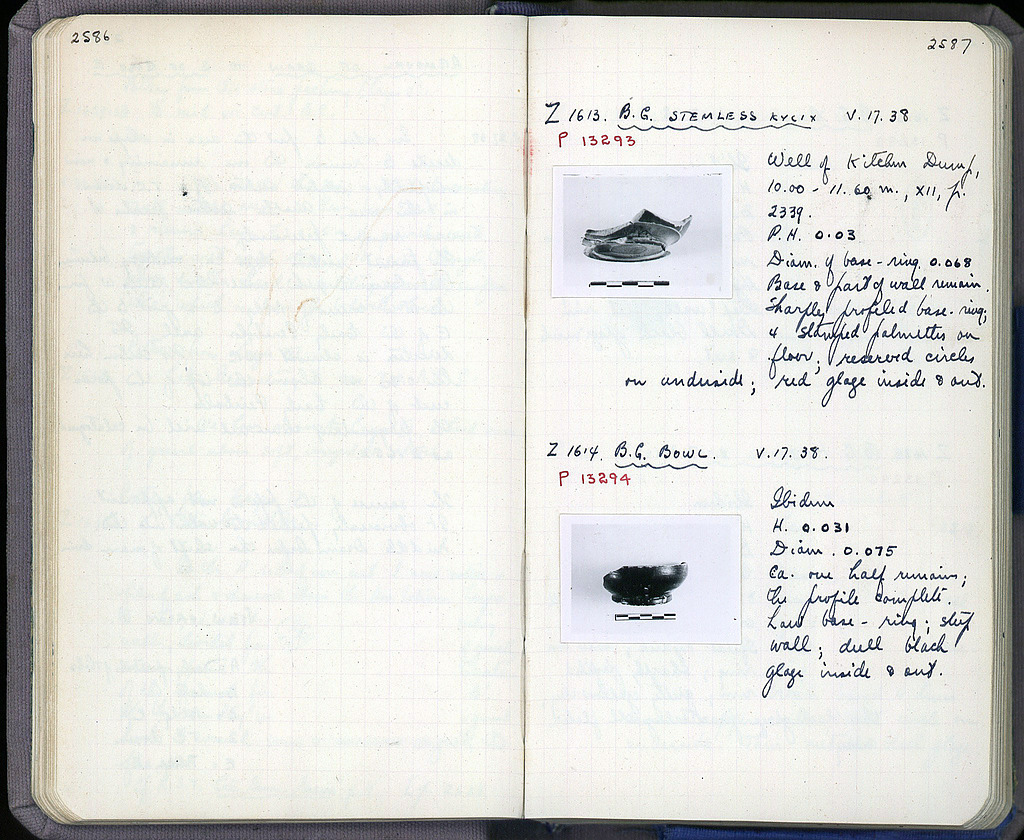 2586
2587
Z 1613. B.G. STEMLESS KYLIX V.17.38
P 13293
Well of Kitchen Dump,
10.00 - 11.60 m., XII, p.
2339.
P.H. 0.03
Diam. of base-ring 0.068
Base & part of wall remain.
Sharply profiled base-ring;
4 stamped palmettes on
floor; reserved circles
on underside; red glaze inside & out.
Z 1614. B.G. BOWL V.17.38.
P 13294
Ibidem
H. 0.031
Diam. 0.075
Ca. one half remains;
the profile complete.
Low base-ring; steep
wall; dull black
glaze inside & out.